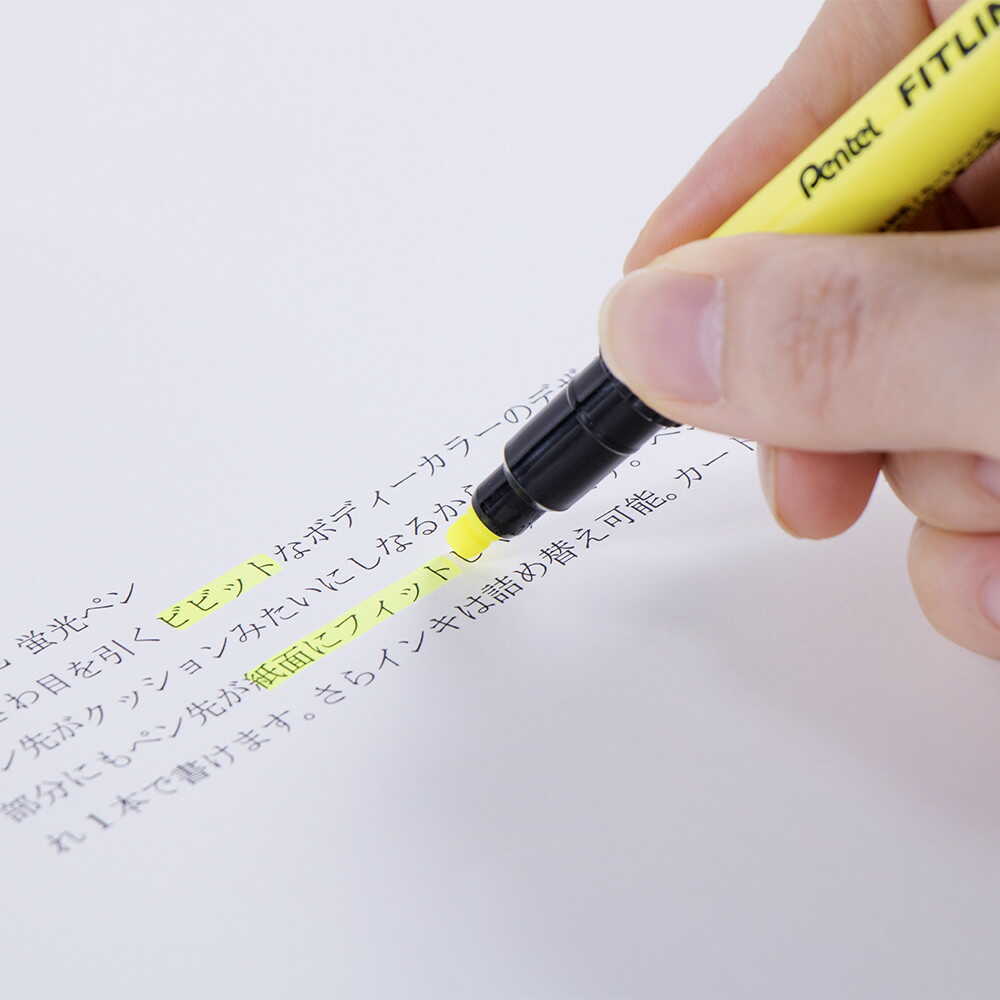 Pentel FITLIN
蛍光ペン
わ目を引くビビットなボディーカラーのデザ
ン先がクッションみたいにしなるから
部分にもペン先が紙面にフィットし
れ1本で書けます。さらインキは詰め替え可能。カート